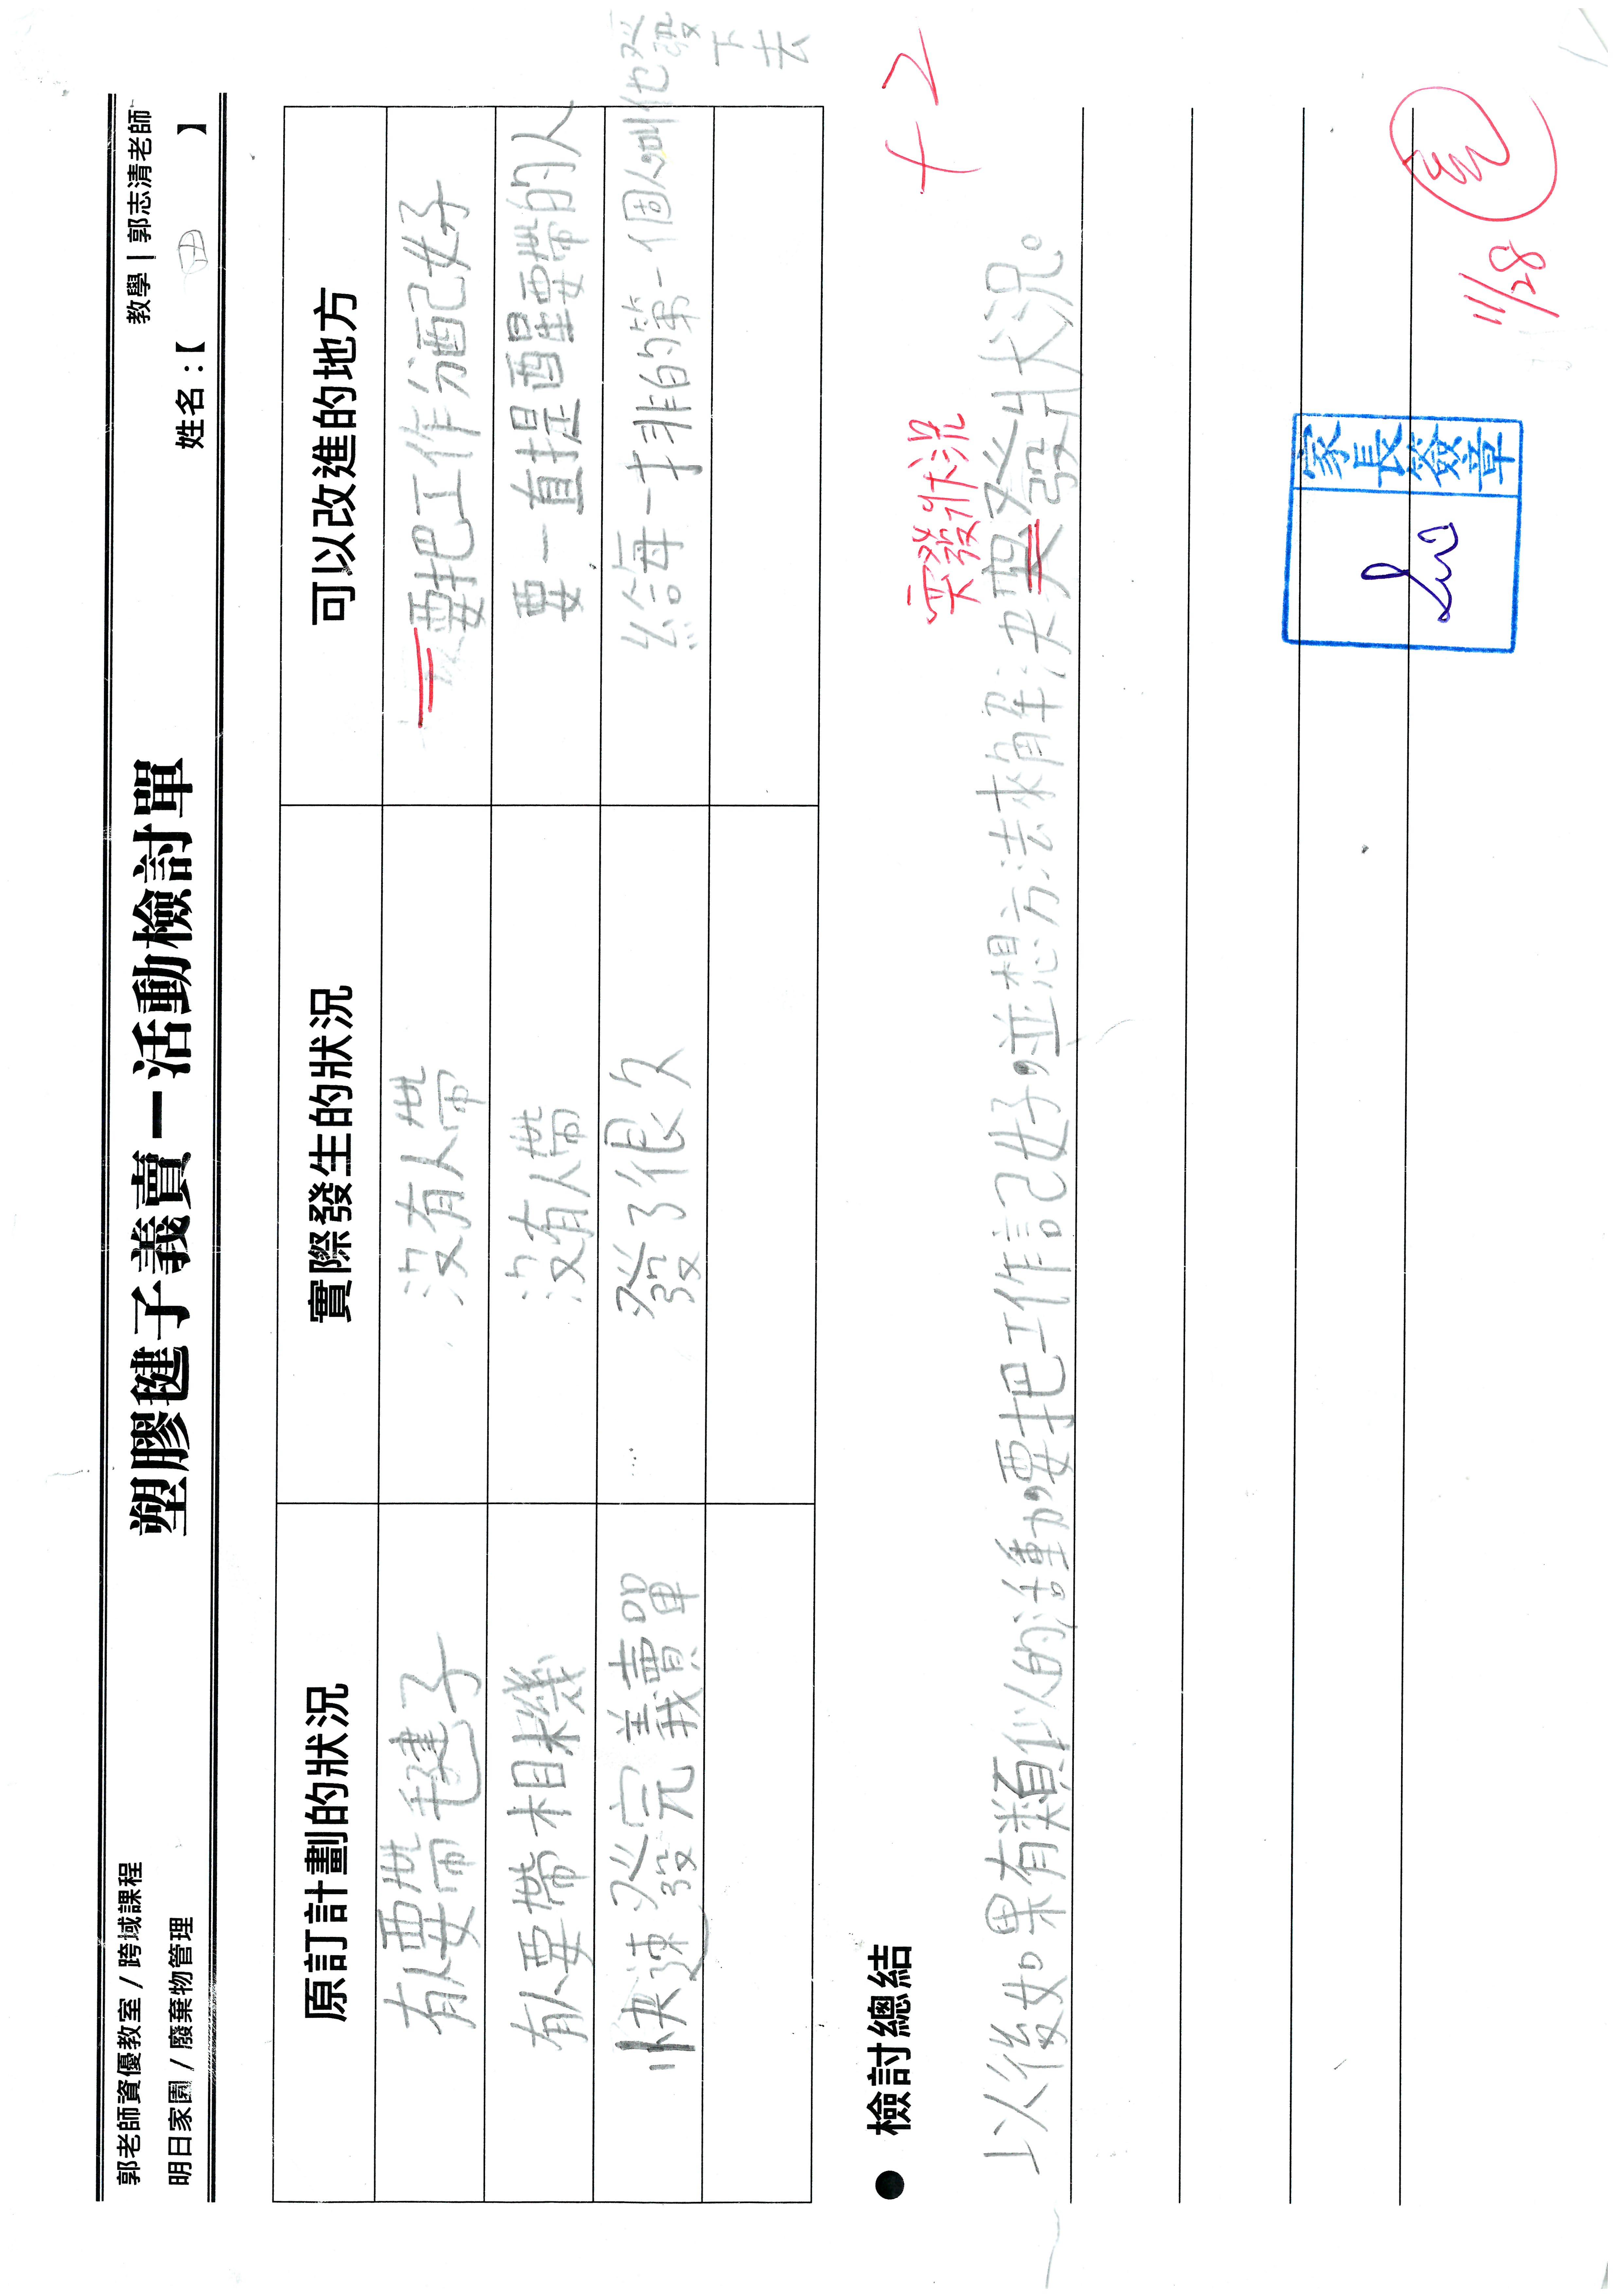 郭老師資優教室 / 跨域課程
教學 | 郭志清老師
明日家園 / 廢棄物管理
塑膠毽子義賣－活動檢討單
姓名：【 田 】
原訂計劃的狀況 實際發生的狀況 可以改進的地方
有人要帶毽子 沒有人帶 要把工作分配好
有人要帶相機 沒有人帶 要一直提醒要帶的人
快速發完義賣單 發了很久 給每一排的第一個人叫他發下去
+2
● 檢討總結
突發狀況
以後如果有類似的活動,要把工作記好,並想方法來解決突發狀況。
家長簽章
11/28